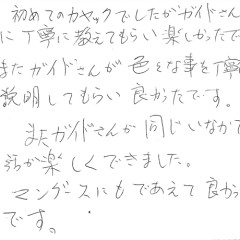 初めてのカヤックでしたがガイドさん
に丁寧に教えてもらい楽しかったで
またガイドさんが色々な事を丁寧
説明してもらい良かったです。
またガイドさんが同じいなかで
話が楽しくできました。
マングースにもであえて良かっ
です。